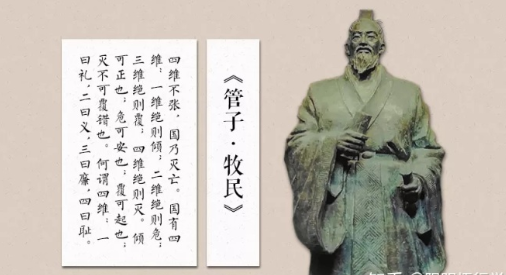 《管子·牧民》
四维不张，国乃灭亡。国有四
维；一维绝则倾；二维绝则危；
三维绝则覆，四维绝则灭。倾
可正也；危可安也；覆可起也；
灭不可覆错也。何谓四维：一
曰礼，二曰义，三曰廉，四曰耻。